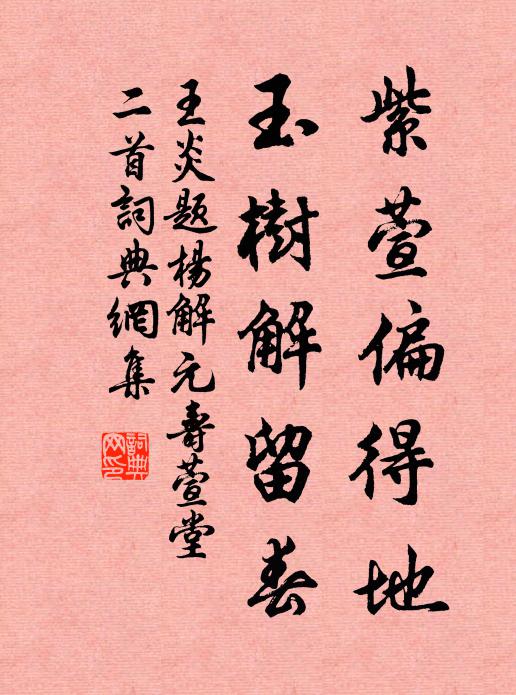 紫萱偏得地
玉樹解留春
王炎題楊解元壽萱堂
二首詞典網集
詞典網印